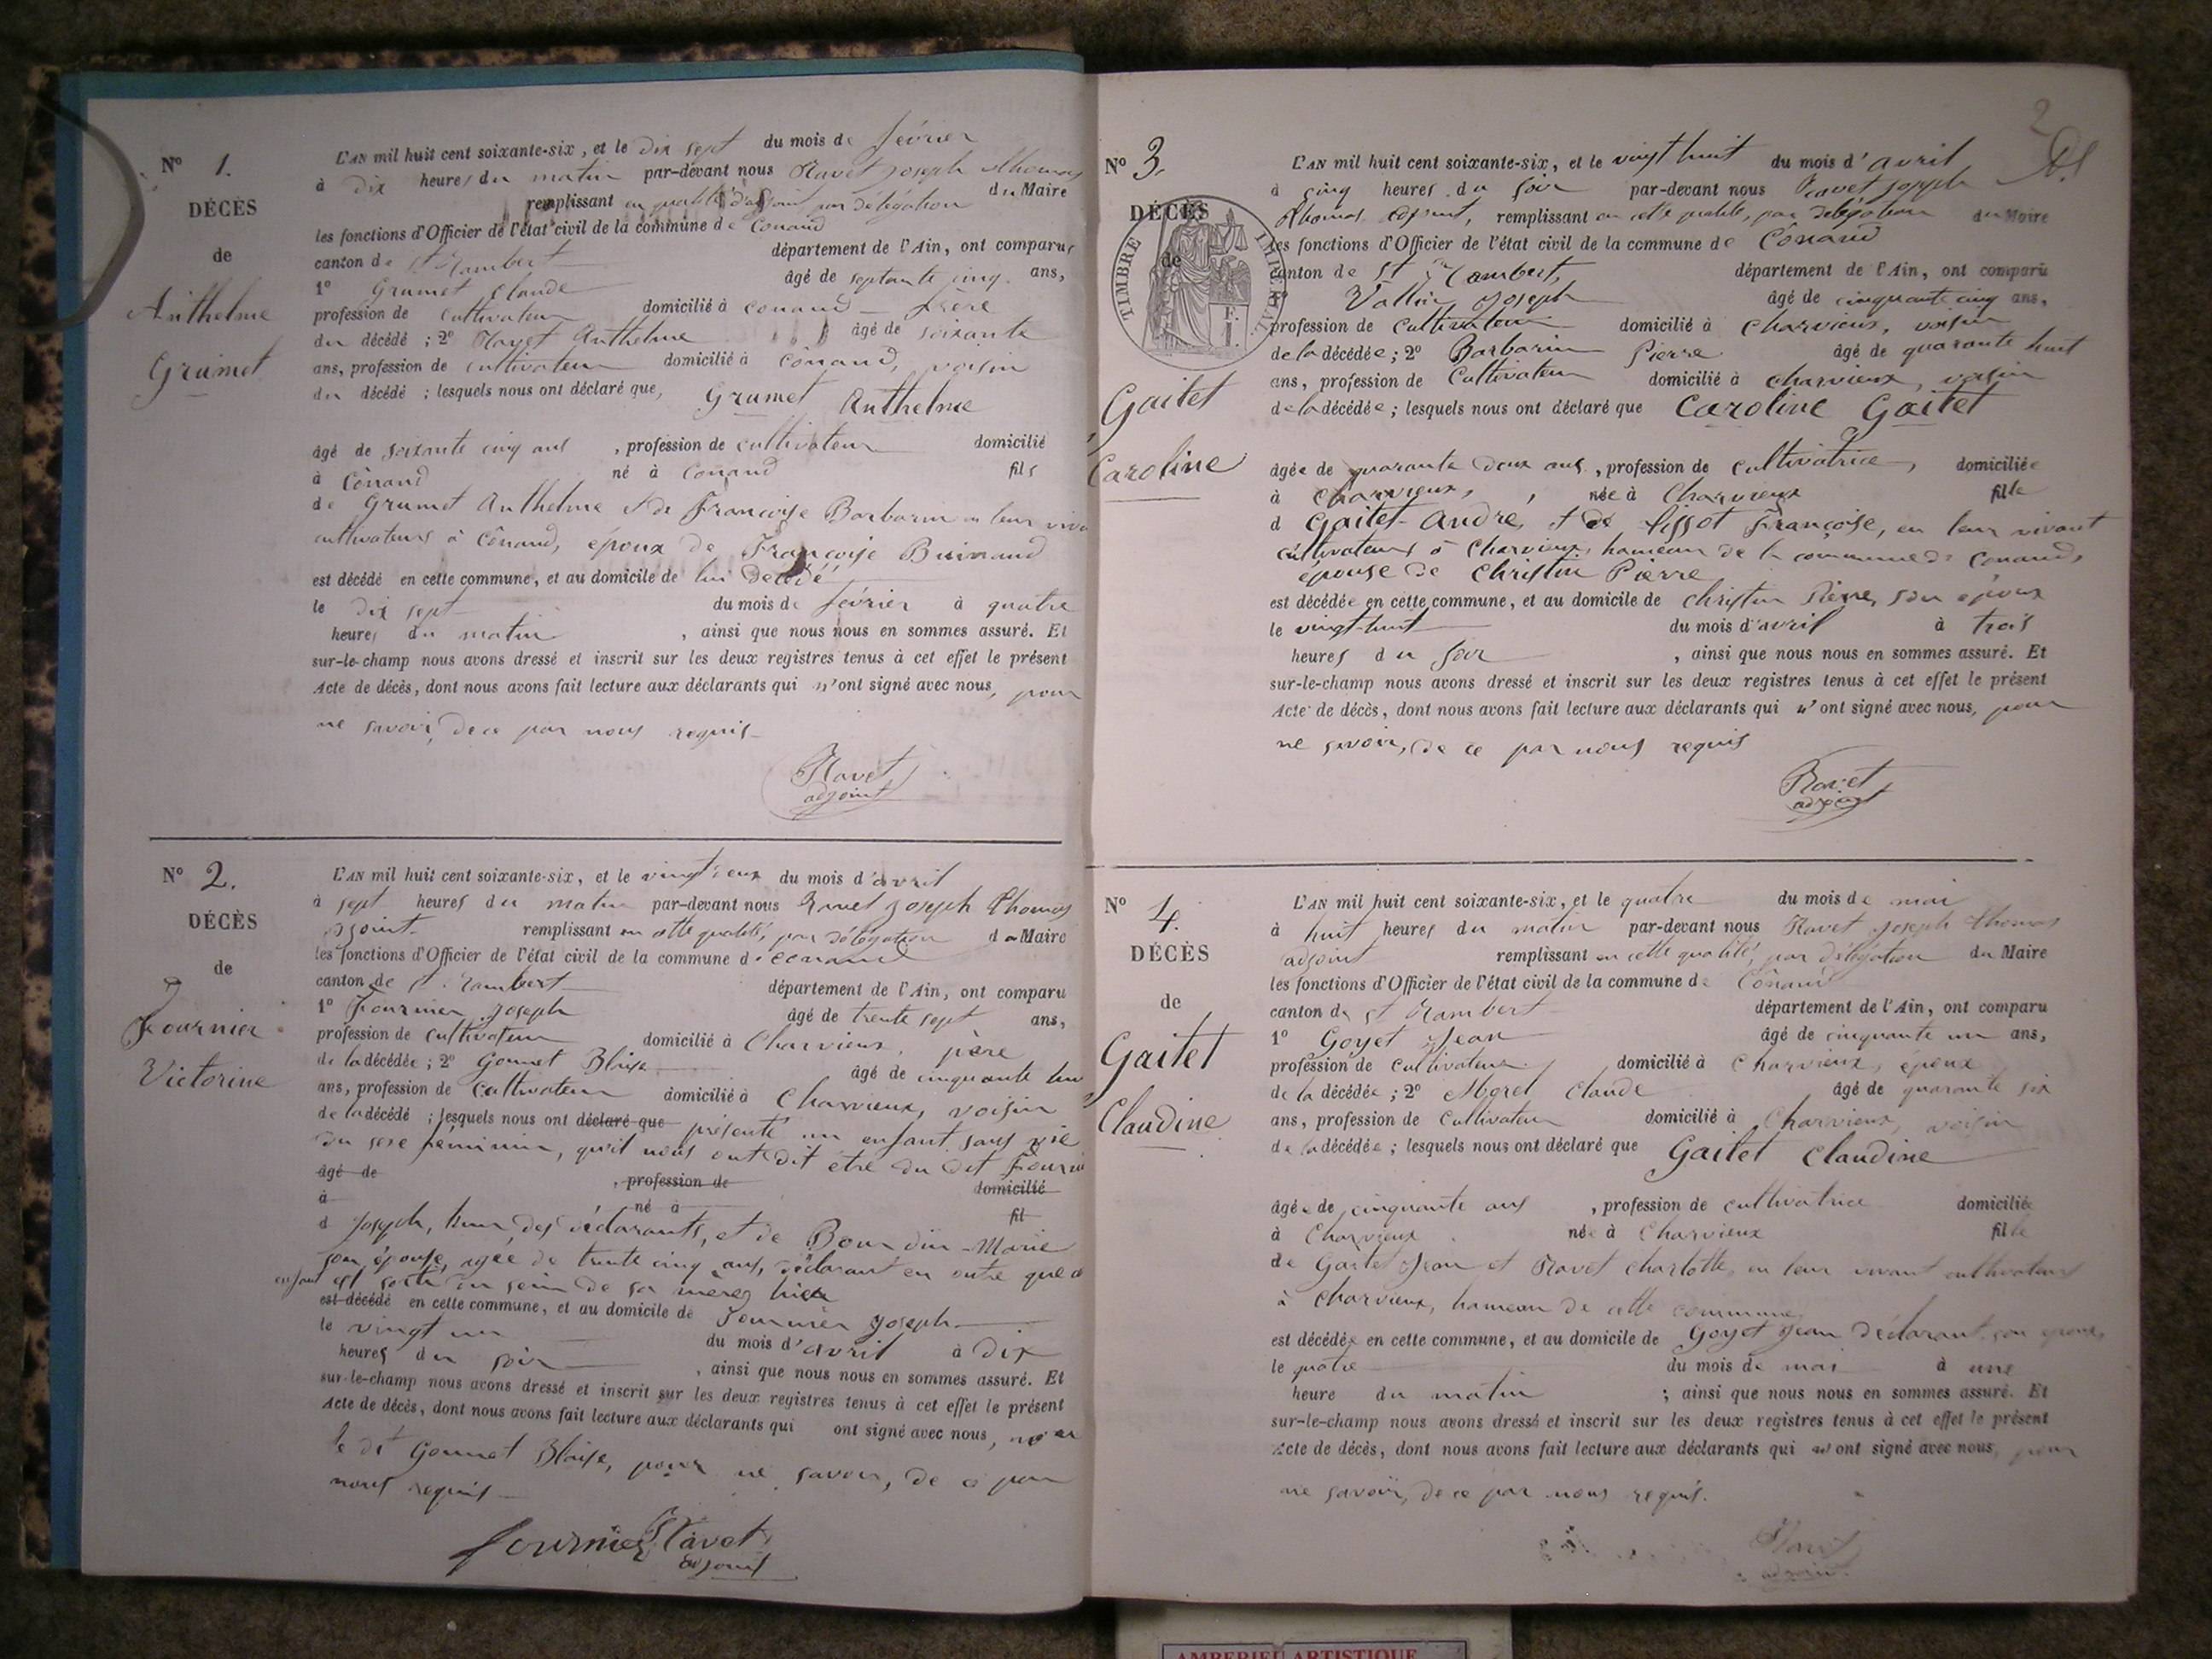 N° 1.
DÉCÈS
de
Anthelme
Grumet
L'AN mil huit cent soixante-six, et le dix sept du mois de février
à dix heures du matin par-devant nous Ravet Joseph Thomas
remplissant en qualité d'adjoint par délégation du Maire
les fonctions d'Officier de l'état civil de la commune de Conand
canton de St Rambert département de l'Ain, ont comparus
1° Grumet Claude âgé de septante cinq ans,
profession de cultivateur domicilié à Conand frère
du décédé ; 2° Ravet Anthelme âgé de soixante
ans, profession de cultivateur domicilié à Cônand, voisin
du décédé ; lesquels nous ont déclaré que, Grumet Anthelme
âgé de soixante cinq ans, profession de cultivateur domicilié
à Cônand né à Conand fils
de Grumet Anthelme & de Françoise Barbarin en leur viva
cultivateurs à Cônand, époux de Françoise Buinand
est décédé en cette commune, et au domicile de lui décédé
le dix sept du mois de février à quatre
heures du matin, ainsi que nous nous en sommes assuré. Et
sur-le-champ nous avons dressé et inscrit sur les deux registres tenus à cet effet le présent
Acte de décès, dont nous avons fait lecture aux déclarants qui n'ont signé avec nous, pour
ne savoir, de ce par nous requis
Ravet
adjoint
N° 2.
DÉCÈS
de
Fournier
Victorine
L'AN mil huit cent soixante-six, et le vingt deux du mois d'avril
à sept heures du matin par-devant nous Ravet Joseph Thomas
adjoint remplissant en cette qualité, par délégation du Maire
les fonctions d'Officier de l'état civil de la commune de Conand
canton de St Rambert département de l'Ain, ont comparu
1° Fournier Joseph âgé de trente sept ans,
profession de cultivateur domicilié à Charvieux, père
de la décédée ; 2° Gonnet Blaise âgé de cinquante
ans, profession de cultivateur domicilié à Charvieux, voisin
de la décédé ; lesquels nous ont déclaré que présenté un enfant sans vie
du sexe féminin, qu'il nous ont dit être du dit Fourni
âgé de, profession de domicilié
à né à
d Joseph, l'un des déclarants, et de Bourdin Marie fil
son épouse, agée de trente cinq ans, déclarant en outre que
enfant est sorti du sein de sa mère, hier
est décédé en cette commune, et au domicile de Fournier Joseph
le vingt un du mois d'avril à dix
heures du soir, ainsi que nous nous en sommes assuré. Et
sur-le-champ nous avons dressé et inscrit sur les deux registres tenus à cet effet le présent
Acte de décès, dont nous avons fait lecture aux déclarants qui ont signé avec nous, non
le dt Gonnet Blaise, pour ne savoir, de ce par
nous requis
fournier Ravet
adjoint
2
N° 3.
DÉCÈS
de
TIMBRE IMPÉRIAL
Gaitet
Caroline
L'AN mil huit cent soixante-six, et le vingt huit du mois d'avril
à cinq heures du soir par-devant nous Ravet Joseph
Thomas adjoint, remplissant en cette qualité, par délégation du Maire
les fonctions d'Officier de l'état civil de la commune de Cônand
canton de St Rambert, département de l'Ain, ont comparu
1° Vallin Joseph âgé de cinquante cinq ans,
profession de cultivateur domicilié à Charvieux, voisin
de la décédée ; 2° Barbarin Pierre âgé de quarante huit
ans, profession de Cultivateur domicilié à Charvieux, voisin
de la décédée ; lesquels nous ont déclaré que Caroline Gaitet
âgée de quarante deux ans, profession de cultivatrice, domiciliée
à Charvieux, née à Charvieux fille
d Gaitet André, & de Pissot Françoise, en leur vivant
cultivateurs à Charvieux, hameau de la commune de Conand,
épouse de Christin Pierre
est décédée en cette commune, et au domicile de Christin Pierre, son époux
le vingt-huit du mois d'avril à trois
heures du soir, ainsi que nous nous en sommes assuré. Et
sur-le-champ nous avons dressé et inscrit sur les deux registres tenus à cet effet le présent
Acte de décès, dont nous avons fait lecture aux déclarants qui n'ont signé avec nous, pour
ne savoir, de ce par nous requis
Ravet
adjoint
N° 4.
DÉCÈS
de
Gaitet
Claudine
L'AN mil huit cent soixante-six, et le quatre du mois de mai
à huit heures du matin par-devant nous Ravet Joseph Thomas
adjoint remplissant en cette qualité, par délégation du Maire
les fonctions d'Officier de l'état civil de la commune de Cônand
canton de St Rambert département de l'Ain, ont comparu
1° Goyet Jean âgé de cinquante un ans,
profession de cultivateur domicilié à Charvieux, époux
de la décédée ; 2° Morel Claude âgé de quarante six
ans, profession de Cultivateur domicilié à Charvieux, voisin
de la décédée ; lesquels nous ont déclaré que Gaitet Claudine
âgée de cinquante ans, profession de cultivatrice domiciliée
à Charvieux née à Charvieux fille
de Gaitet Jean et Ravet Charlotte, en leur vivant cultivateurs
à Charvieux, hameau de cette commune
est décédée en cette commune, et au domicile de Goyet Jean déclarant son époux,
le quatre du mois de mai à une
heure du matin ; ainsi que nous nous en sommes assuré. Et
sur-le-champ nous avons dressé et inscrit sur les deux registres tenus à cet effet le présent
Acte de décès, dont nous avons fait lecture aux déclarants qui n'ont signé avec nous, pour
ne savoir, de ce par nous requis.
Ravet
adjoint
AMBERIEU ARTISTIQUE